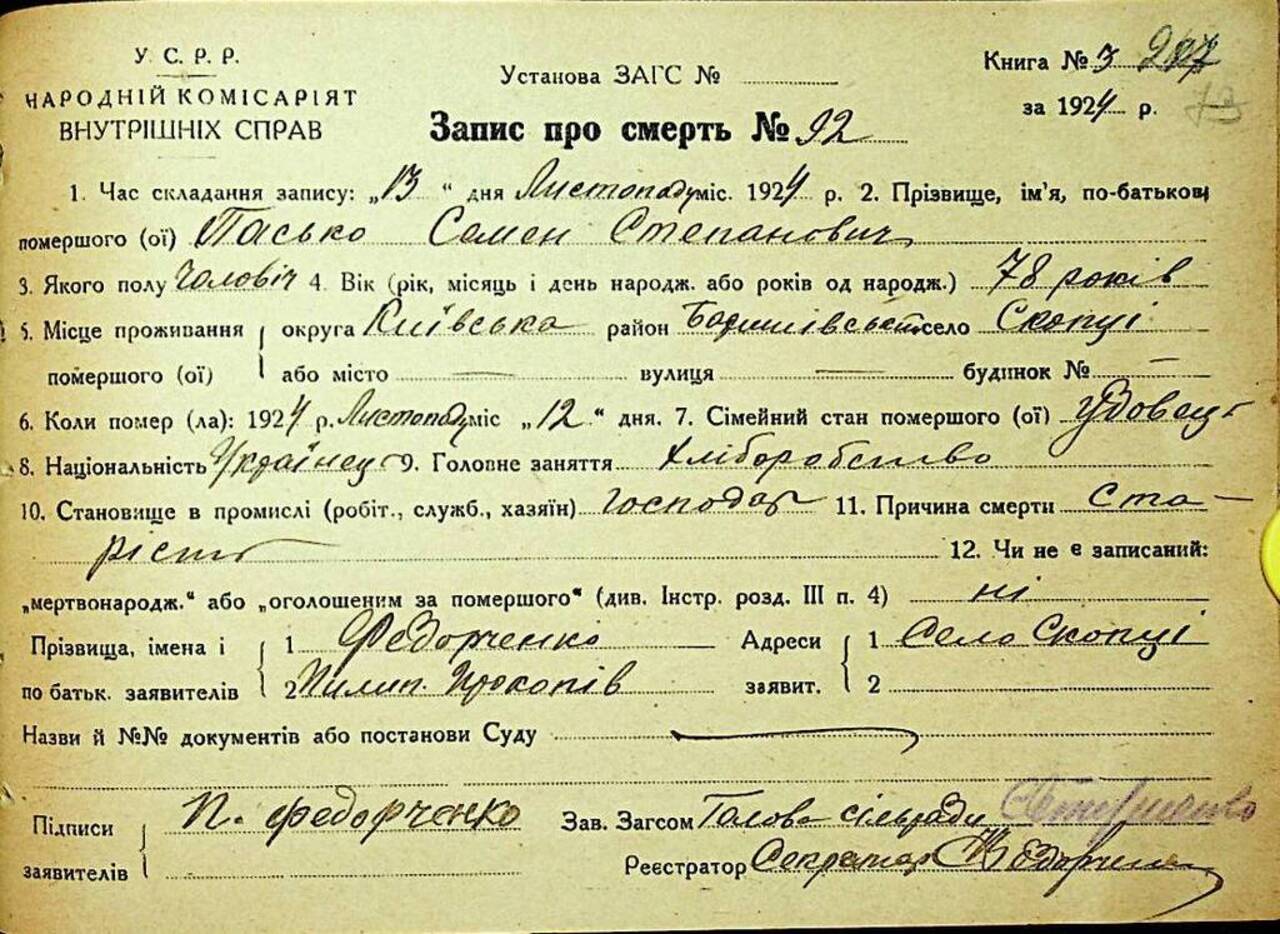 У. С. Р. Р.
НАРОДНІЙ КОМІСАРІЯТ
ВНУТРІШНІХ СПРАВ
Установа ЗАГС №
Запис про смерть № 92
Книга № 3 207
за 1924 р. 73
1. Час складання запису: „13“ дня Листопаду міс. 1924 р. 2. Прізвище, ім'я, по-батькові
помершого (ої) Пасько Семен Степанович
3. Якого полу чоловіч 4. Вік (рік, місяць і день народж. або років од народж.) 78 років
5. Місце проживання округа Київська район село Скопці
помершого (ої) або місто — вулиця — будинок № —
6. Коли помер (ла): 1924 р. Листопаду міс „12“ дня. 7. Сімейний стан помершого (ої) Удовець
8. Національність Українець 9. Головне заняття Хліборобство
10. Становище в промислі (робіт., служб., хазяїн) господар 11. Причина смерти Ста-
рість 12. Чи не є записаний:
„мертвонародж.“ або „оголошеним за помершого“ (див. Інстр. розд. III п. 4) ні
Прізвища, імена і 1 Федорченко Адреси 1 Село Скопці
по батьк. заявителів 2 Пилип. Прокопів заявит. 2
Назви й №№ документів або постанови Суду —
Підписи П. Федорченко Зав. Загсом Голова сільради
заявителів Реєстратор Секретар